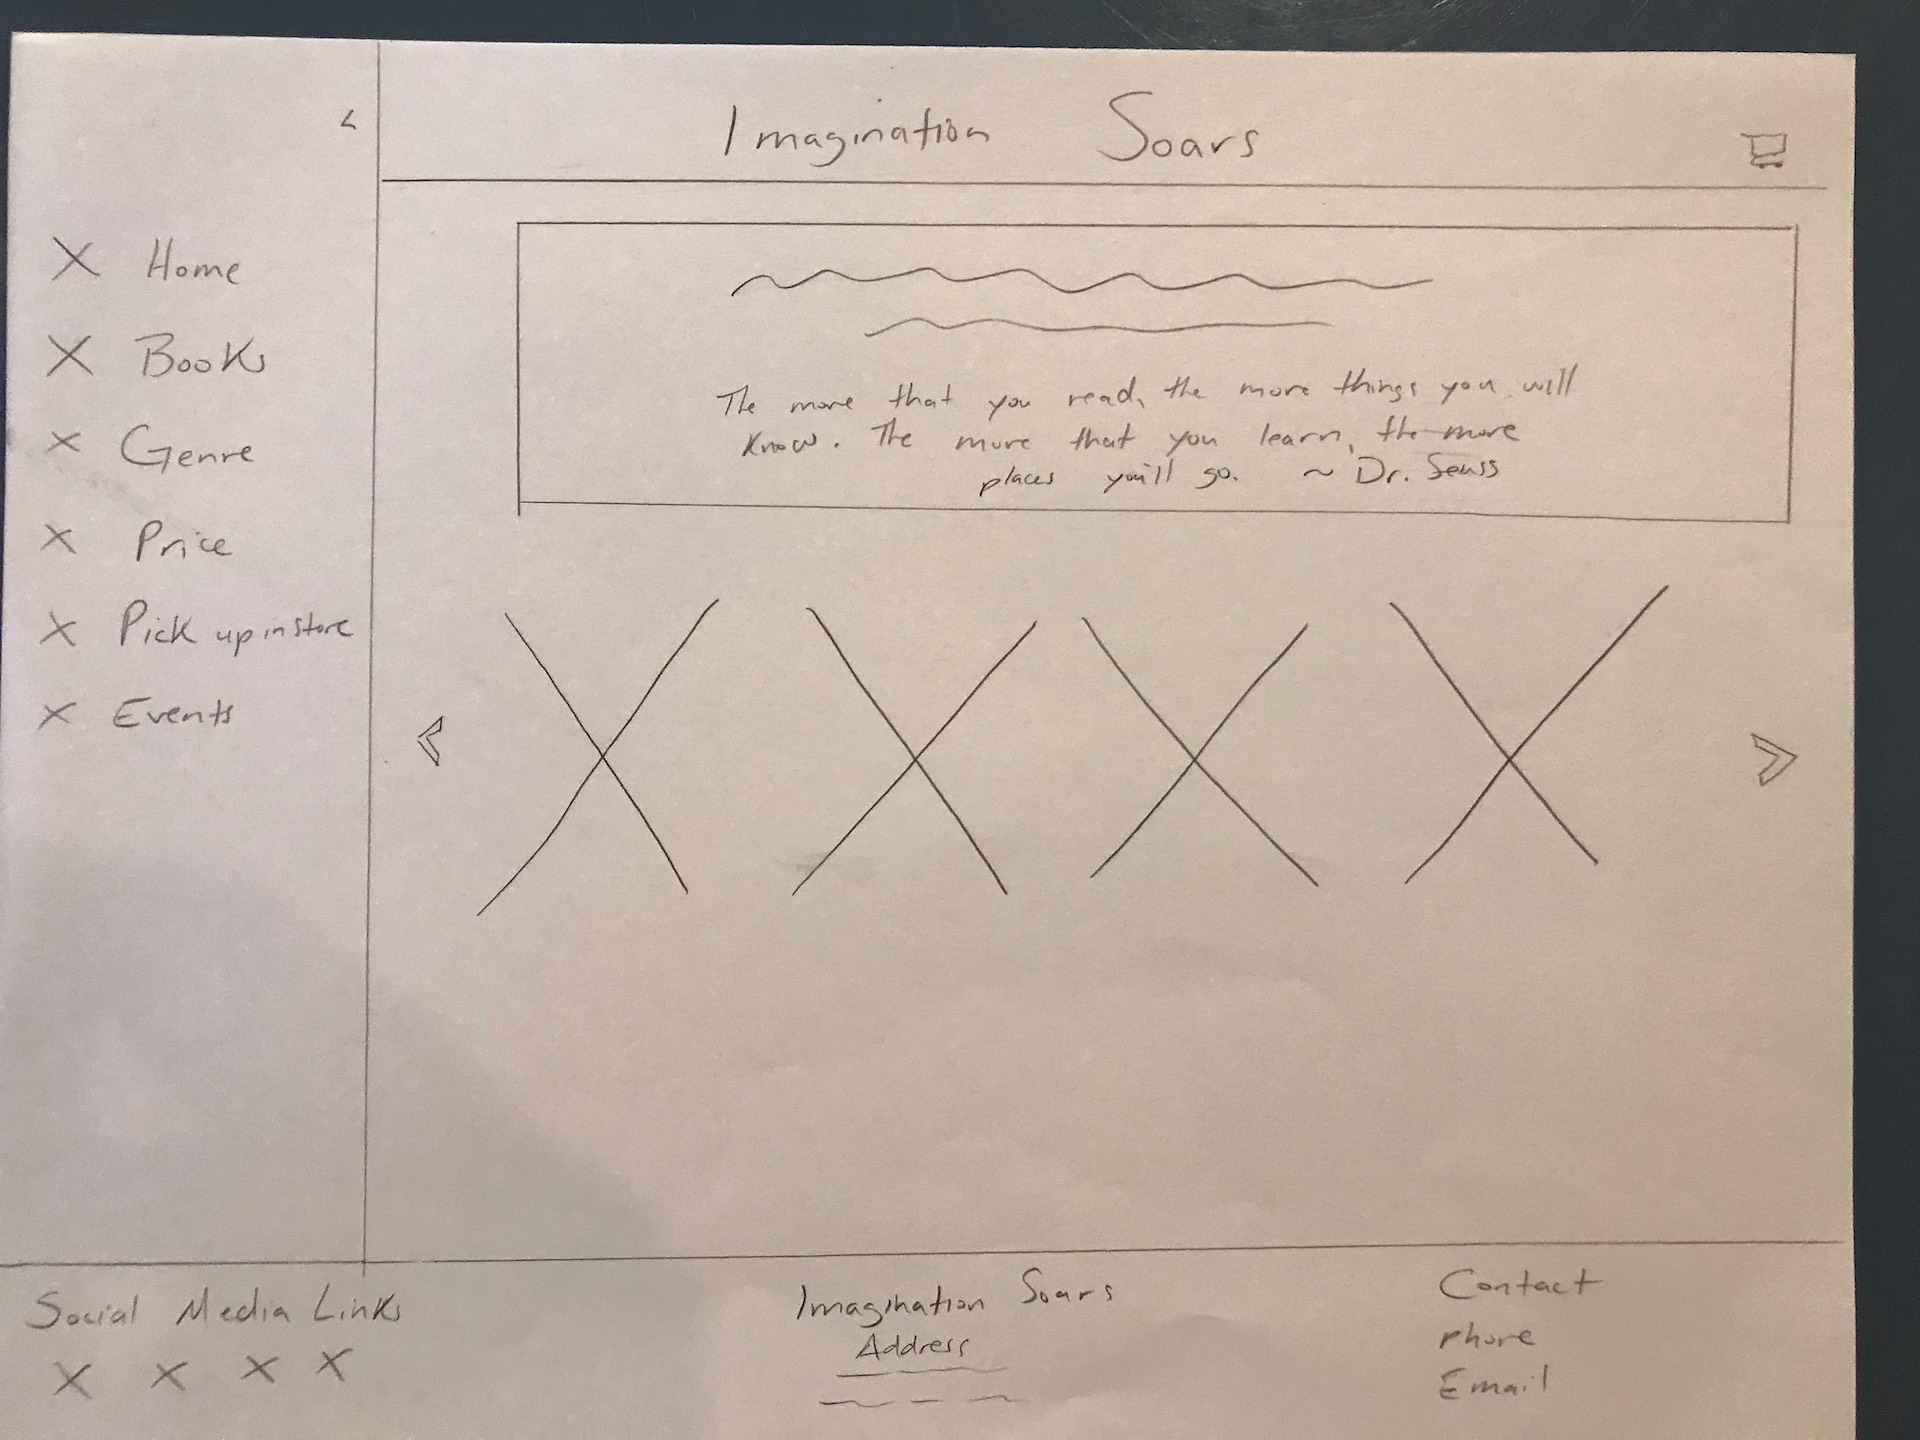 Imagination Soars
Home
Books
Genre
Price
Pick up in store
Events
The more that you read, the more things you will
know. The more that you learn, the more
places you'll go. ~ Dr. Seuss
Social Media Links
Imagination Soars
Address
Contact
phone
Email